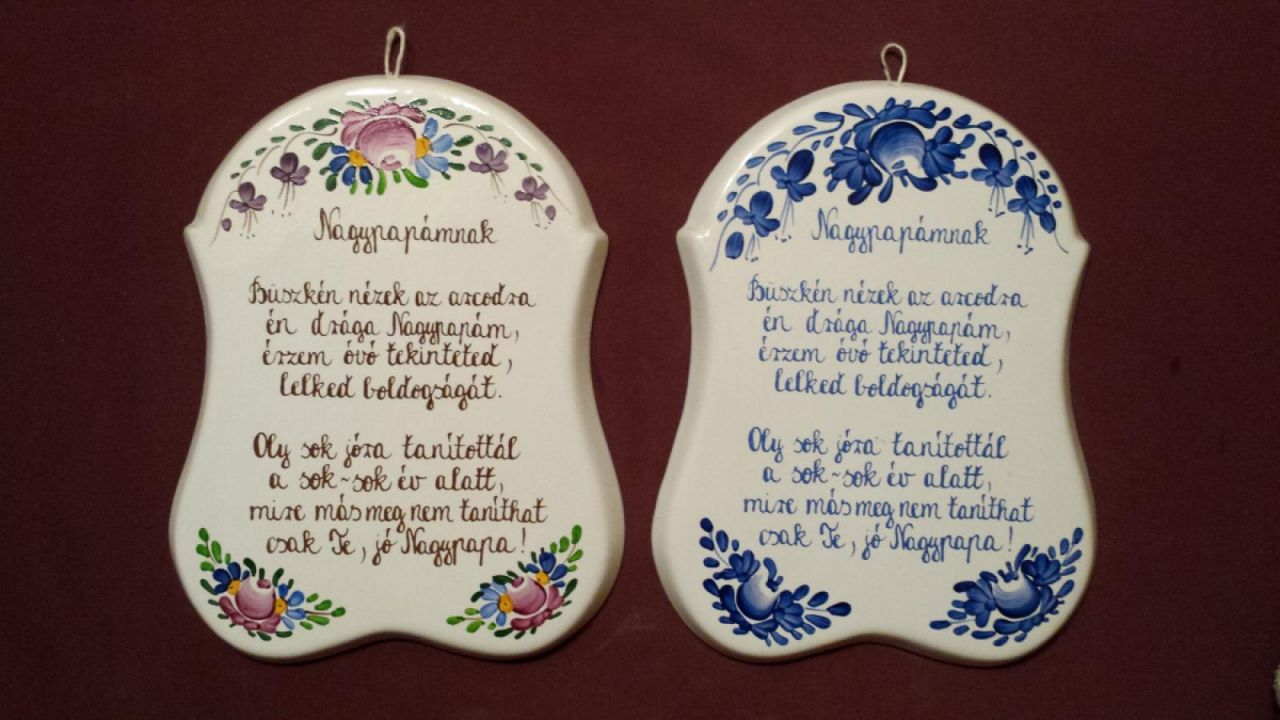 Nagypapámnak
Büszkén nézek az arcodra
én drága Nagypapám,
érzem óvó tekinteted,
lelked boldogságát.
Oly sok jóra tanítottál
a sok-sok év alatt,
mire más meg nem taníthat
csak Te, jó Nagypapa!
Nagypapámnak
Büszkén nézek az arcodra
én drága Nagypapám,
érzem óvó tekinteted,
lelked boldogságát.
Oly sok jóra tanítottál
a sok-sok év alatt,
mire más meg nem taníthat
csak Te, jó Nagypapa!